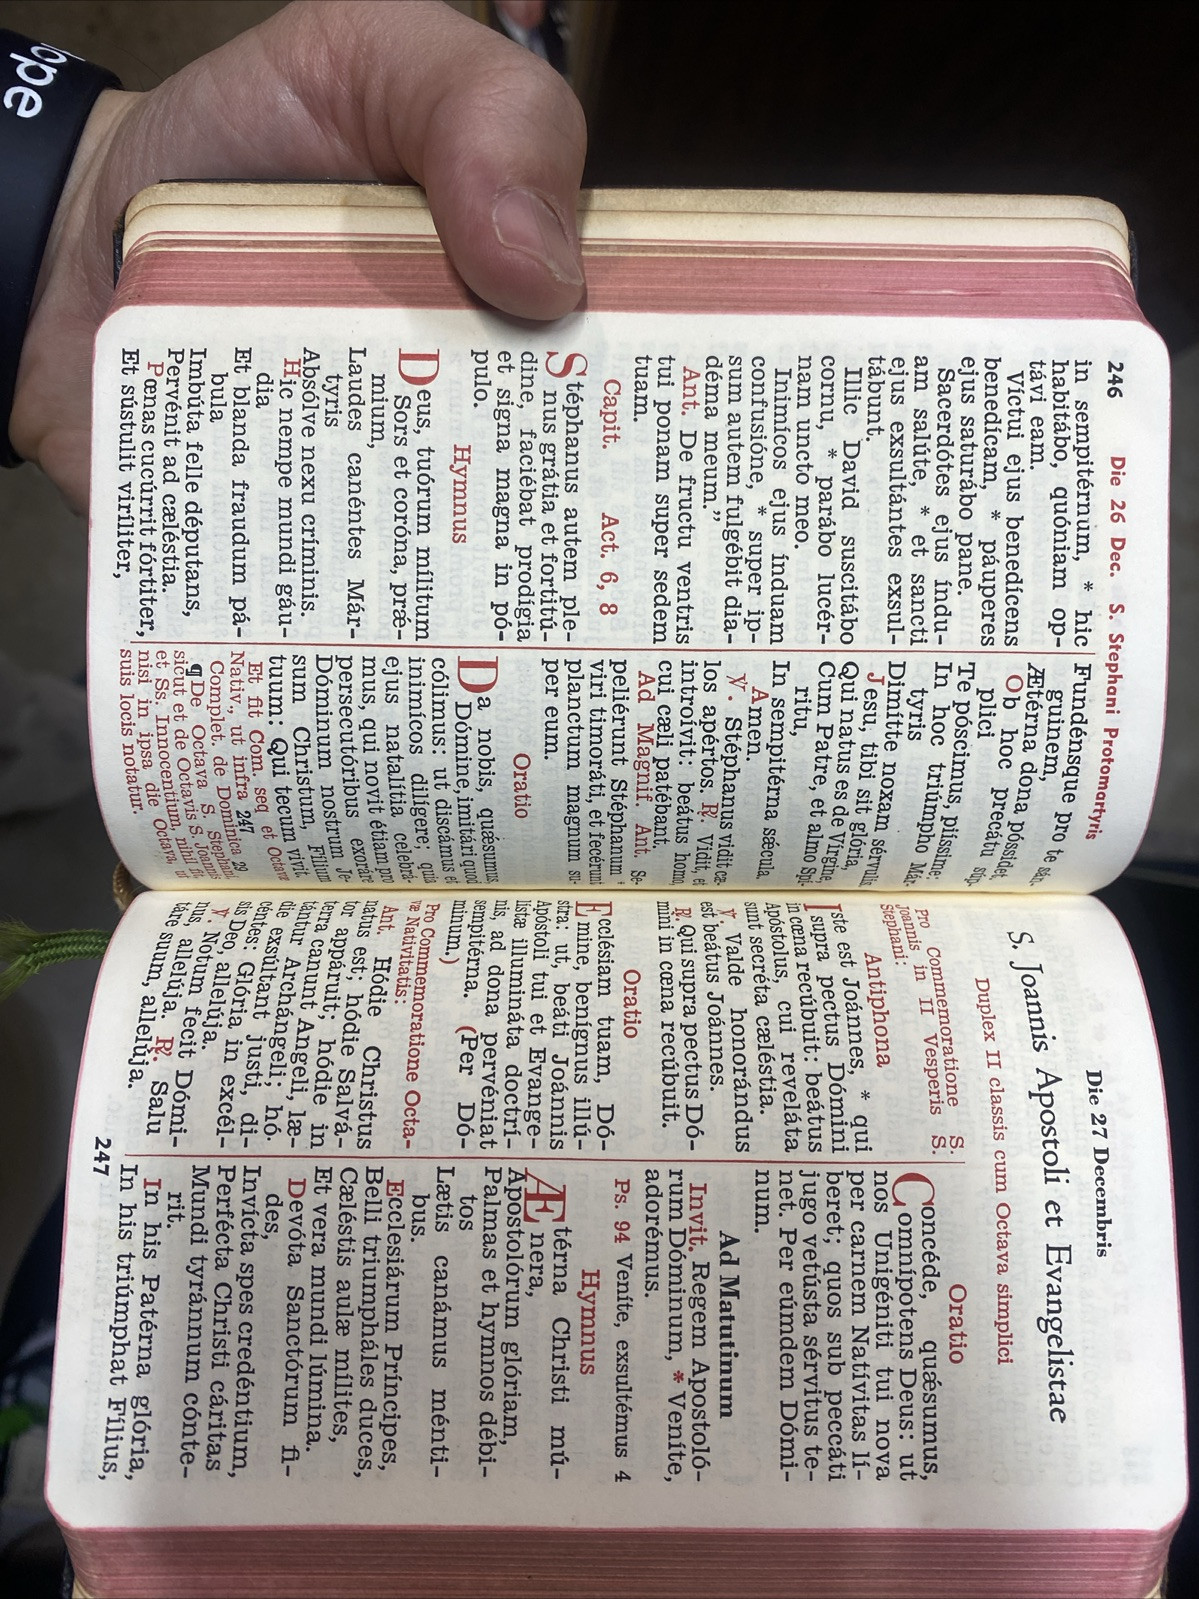 ope
246 Die 26 Dec. S. Stephani Protomartyris
in sempitérnum, * hic
habitábo, quóniam op-
távi eam.
Víctui ejus benedícens
benedícam, * páuperes
ejus saturábo pane.
Sacerdótes ejus índu-
am salúte, * et sancti
ejus exsultántes exsul-
tábunt.
Illic David suscitábo
cornu, * parábo lucér-
nam uncto meo.
Inimícos ejus índuam
confusióne, * super ip-
sum autem fulgébit dia-
déma meum.”
Ant. De fructu ventris
tui ponam super sedem
tuam.
Capit. Act. 6, 8
Stéphanus autem ple-
nus grátia et fortitú-
dine, faciébat prodígia
et signa magna in pó-
pulo.
Hymnus
Deus, tuórum mílitum
Sors et coróna, prǽ-
mium,
Laudes canéntes Már-
tyris
Absólve nexu críminis.
Hic nempe mundi gáu-
dia
Et blanda fraudum pá-
bula
Imbúta felle députans,
Pervénit ad cæléstia.
Pœnas cucúrrit fórtiter,
Et sústulit viríliter,
Fundénsque pro te sán-
guinem,
Ætérna dona póssidet.
Ob hoc precátu súp-
plici
Te póscimus, piíssime;
In hoc triúmpho Már-
tyris
Dimítte noxam sérvulis
Jesu, tibi sit glória,
Qui natus es de Vírgine,
Cum Patre, et almo Spí-
ritu,
In sempitérna sǽcula.
Amen.
℣. Stéphanus vidit cæ-
los apértos. ℟. Vidit, et
introívit: beátus homo,
cui cæli patébant.
Ad Magnif. Ant. Se-
peliérunt Stéphanum *
viri timoráti, et fecérunt
planctum magnum su-
per eum.
Oratio
Da nobis, quǽsumus,
Dómine, imitári quod
cólimus: ut discámus et
inimícos dilígere; quia
ejus natalítia celebrá-
mus, qui novit étiam pro
persecutóribus exoráre
Dóminum nostrum Je-
sum Christum, Fílium
tuum: Qui tecum vivit.
Et fit Com. seq et Octavæ
Nativ., ut infra 247
Complet. de Dominica 29
¶ De Octava S. Stephani
sicut et de Octavis S. Joannis
et Ss. Innocentium, nihil fit
nisi in ipsa die Octava, ut
suis locis notatur.
Die 27 Decembris
S. Joannis Apostoli et Evangelistae
Duplex II classis cum Octava simplici
Pro Commemoratione S.
Joannis in II Vesperis S.
Stephani:
Antiphona
Iste est Joánnes, * qui
supra pectus Dómini
in cœna recúbuit: beátus
Apóstolus, cui reveláta
sunt secréta cæléstia.
℣. Valde honorándus
est beátus Joánnes.
℟. Qui supra pectus Dó-
mini in cœna recúbuit.
Oratio
Ecclésiam tuam, Dó-
mine, benígnus illú-
stra: ut, beáti Joánnis
Apóstoli tui et Evange-
lístæ illumináta doctrí-
nis, ad dona pervéniat
sempitérna. (Per Dó-
minum.)
Pro Commemoratione Octa-
væ Nativitatis:
Ant. Hódie Christus
natus est; hódie Salvá-
tor appáruit; hódie in
terra canunt Angeli, læ-
tántur Archángeli; hó-
die exsúltant justi, di-
céntes: Glória in excél-
sis Deo, allelúja.
℣. Notum fecit Dómi-
nus, allelúja. ℟. Salu
táre suum, allelúja.
Oratio
Concéde, quǽsumus,
omnípotens Deus: ut
nos Unigéniti tui nova
per carnem Natívitas lí-
beret; quos sub peccáti
jugo vetústa sérvitus te-
net. Per eúmdem Dómi-
num.
Ad Matutinum
Invit. Regem Apostoló-
rum Dóminum, * Veníte,
adorémus.
Ps. 94 Veníte, exsultémus 4
Hymnus
Ætérna Christi mú-
nera,
Apostolórum glóriam,
Palmas et hymnos débi-
tos
Lætis canámus ménti-
bus.
Ecclesiárum Príncipes,
Belli triumpháles duces,
Cæléstis aulæ mílites,
Et vera mundi lúmina.
Devóta Sanctórum fi-
des,
Invícta spes credéntium,
Perfécta Christi cáritas
Mundi tyránnum cónte-
rit.
In his Patérna glória,
In his triúmphat Fílius,
247